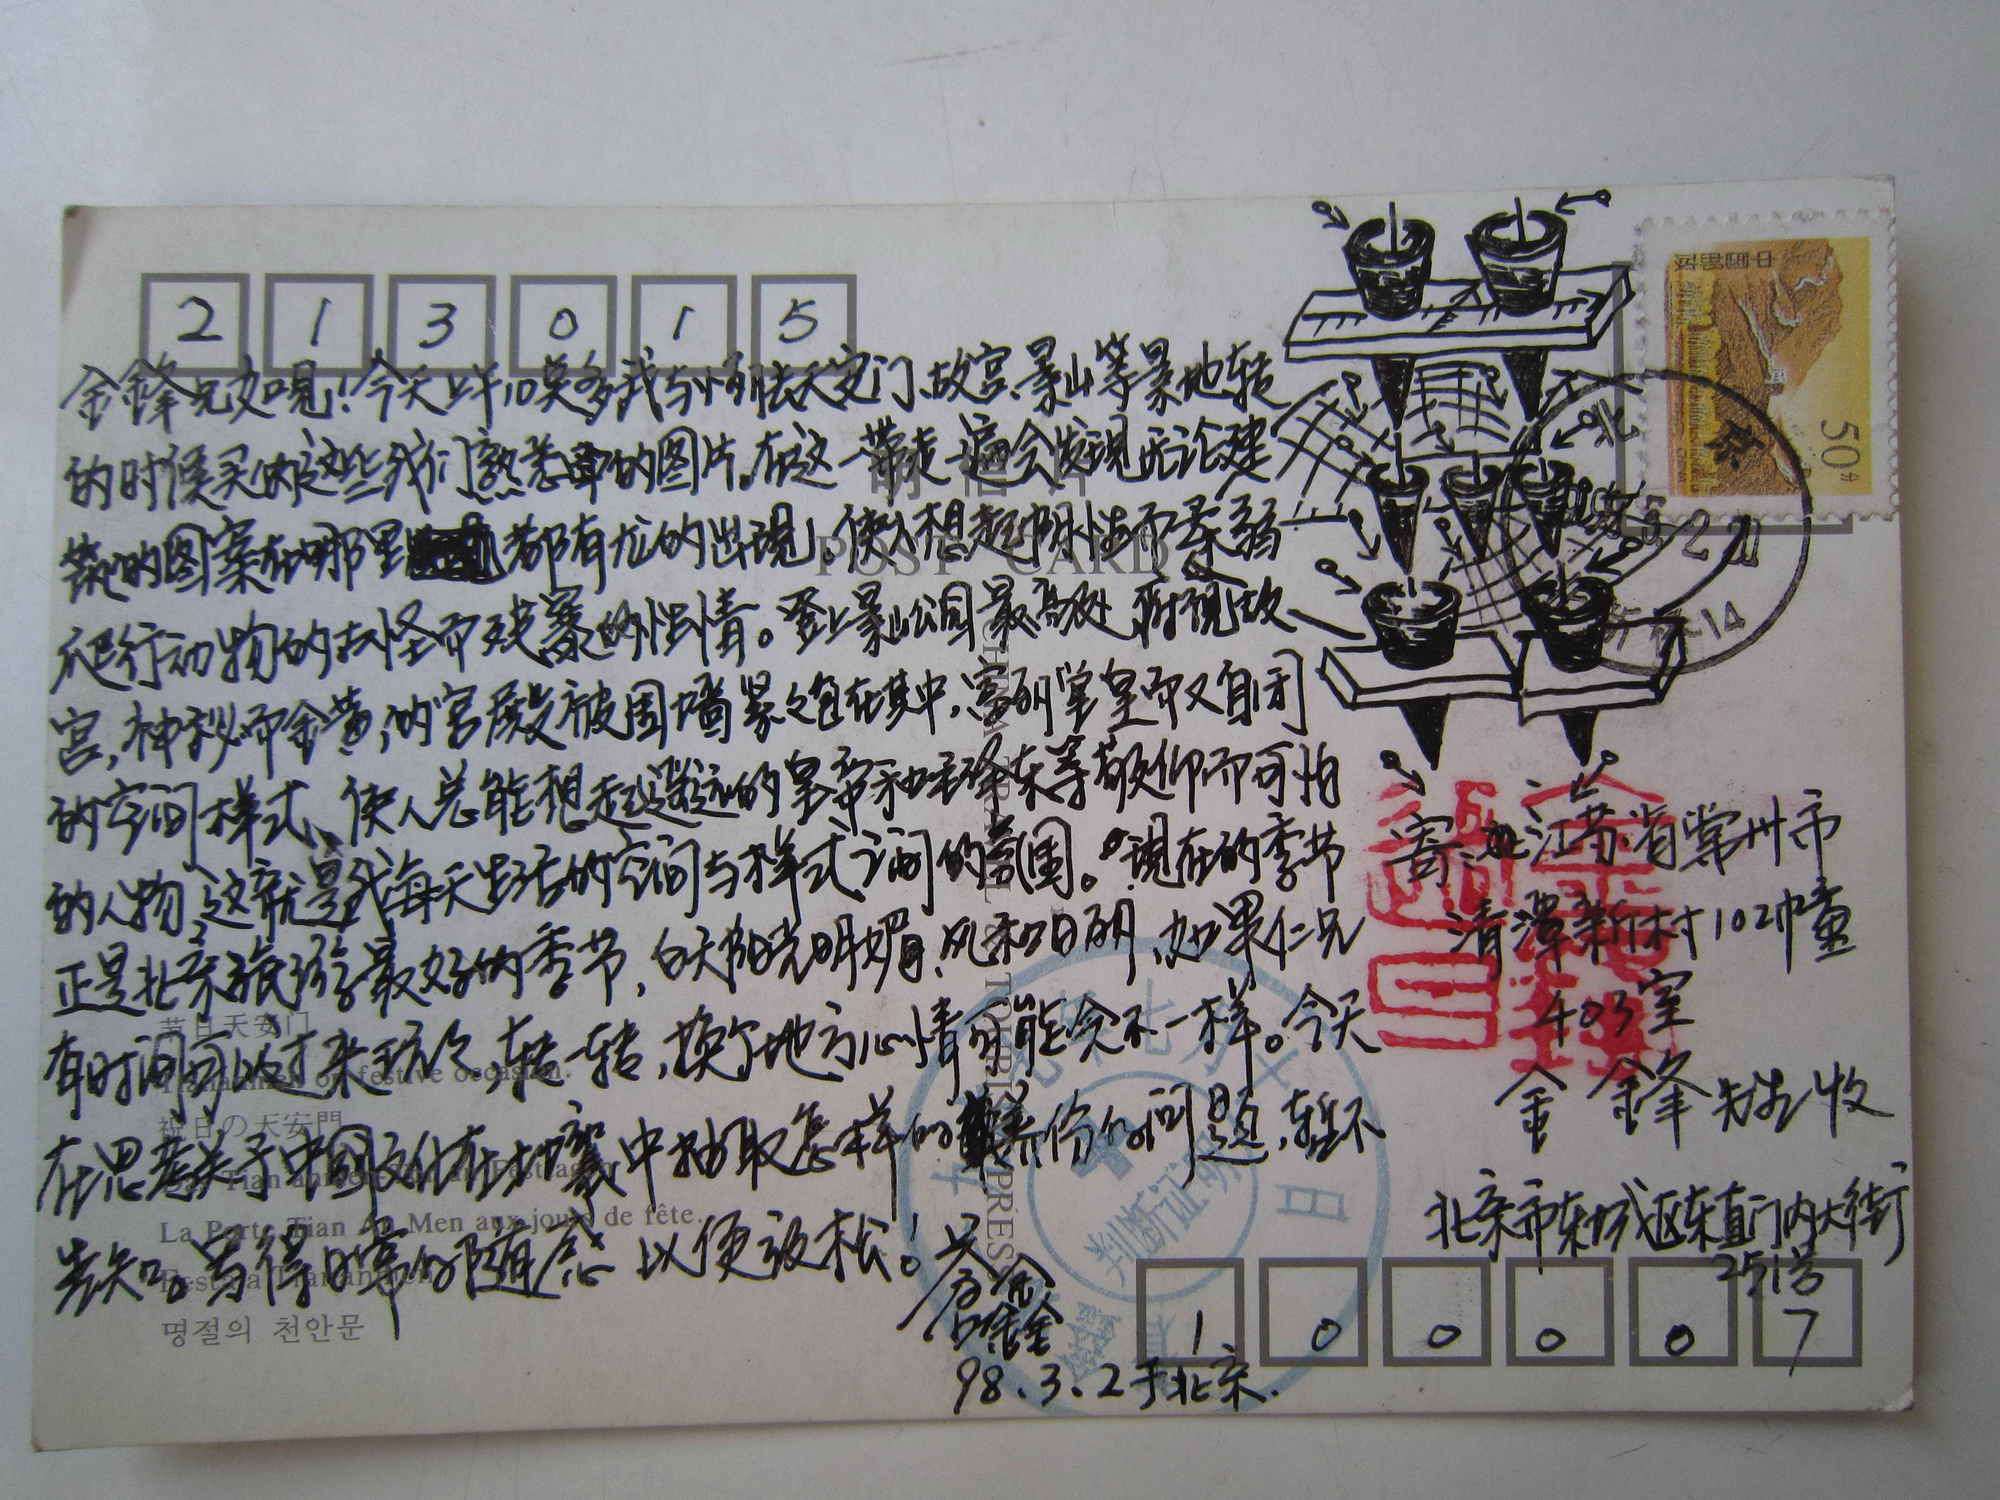 213015
金鋒兄文岘！今天上午10点多我与小弟去天安门、故宫、景山等景地转
的时候买的这些我们熟悉的图片，在这一带走一遍会发现无论建
筑的图案在哪里都有龙的出现。使人想起阴性而柔弱
爬行动物的古怪而残寡的性情。登上景山公园最高处俯视故
宫，神秘而金黄的宫殿被围墙紧紧包在其中，富丽堂皇而又自闭
的空间样式、使人总能想起遥远的皇帝和毛泽东等敬仰而可怕
的人物，这就是我每天生活的空间与样式之间的氛围。现在的季节
正是北京旅游最好的季节，白天阳光明媚，风和日丽，如果仁兄
有时间可以过来玩玩，转一转，换个地方心情可能会不一样。今天
在思考关于中国文化在中抽取怎样的养份的问题，暂不
告知。写得日常的随感以便放松！
98.3.2于北京.
中国邮政
50分
明信片
POST CARD
寄 江苏省常州市
清潭新村102幢
403室
金 鋒 先生 收
北京市东城区东直门内大街
251号
100007
节日天安门
Tiananmen on festive occasion.
祝日の天安門
La Porte Tian An Men aux jours de fête.
명절의 천안문
判断证明